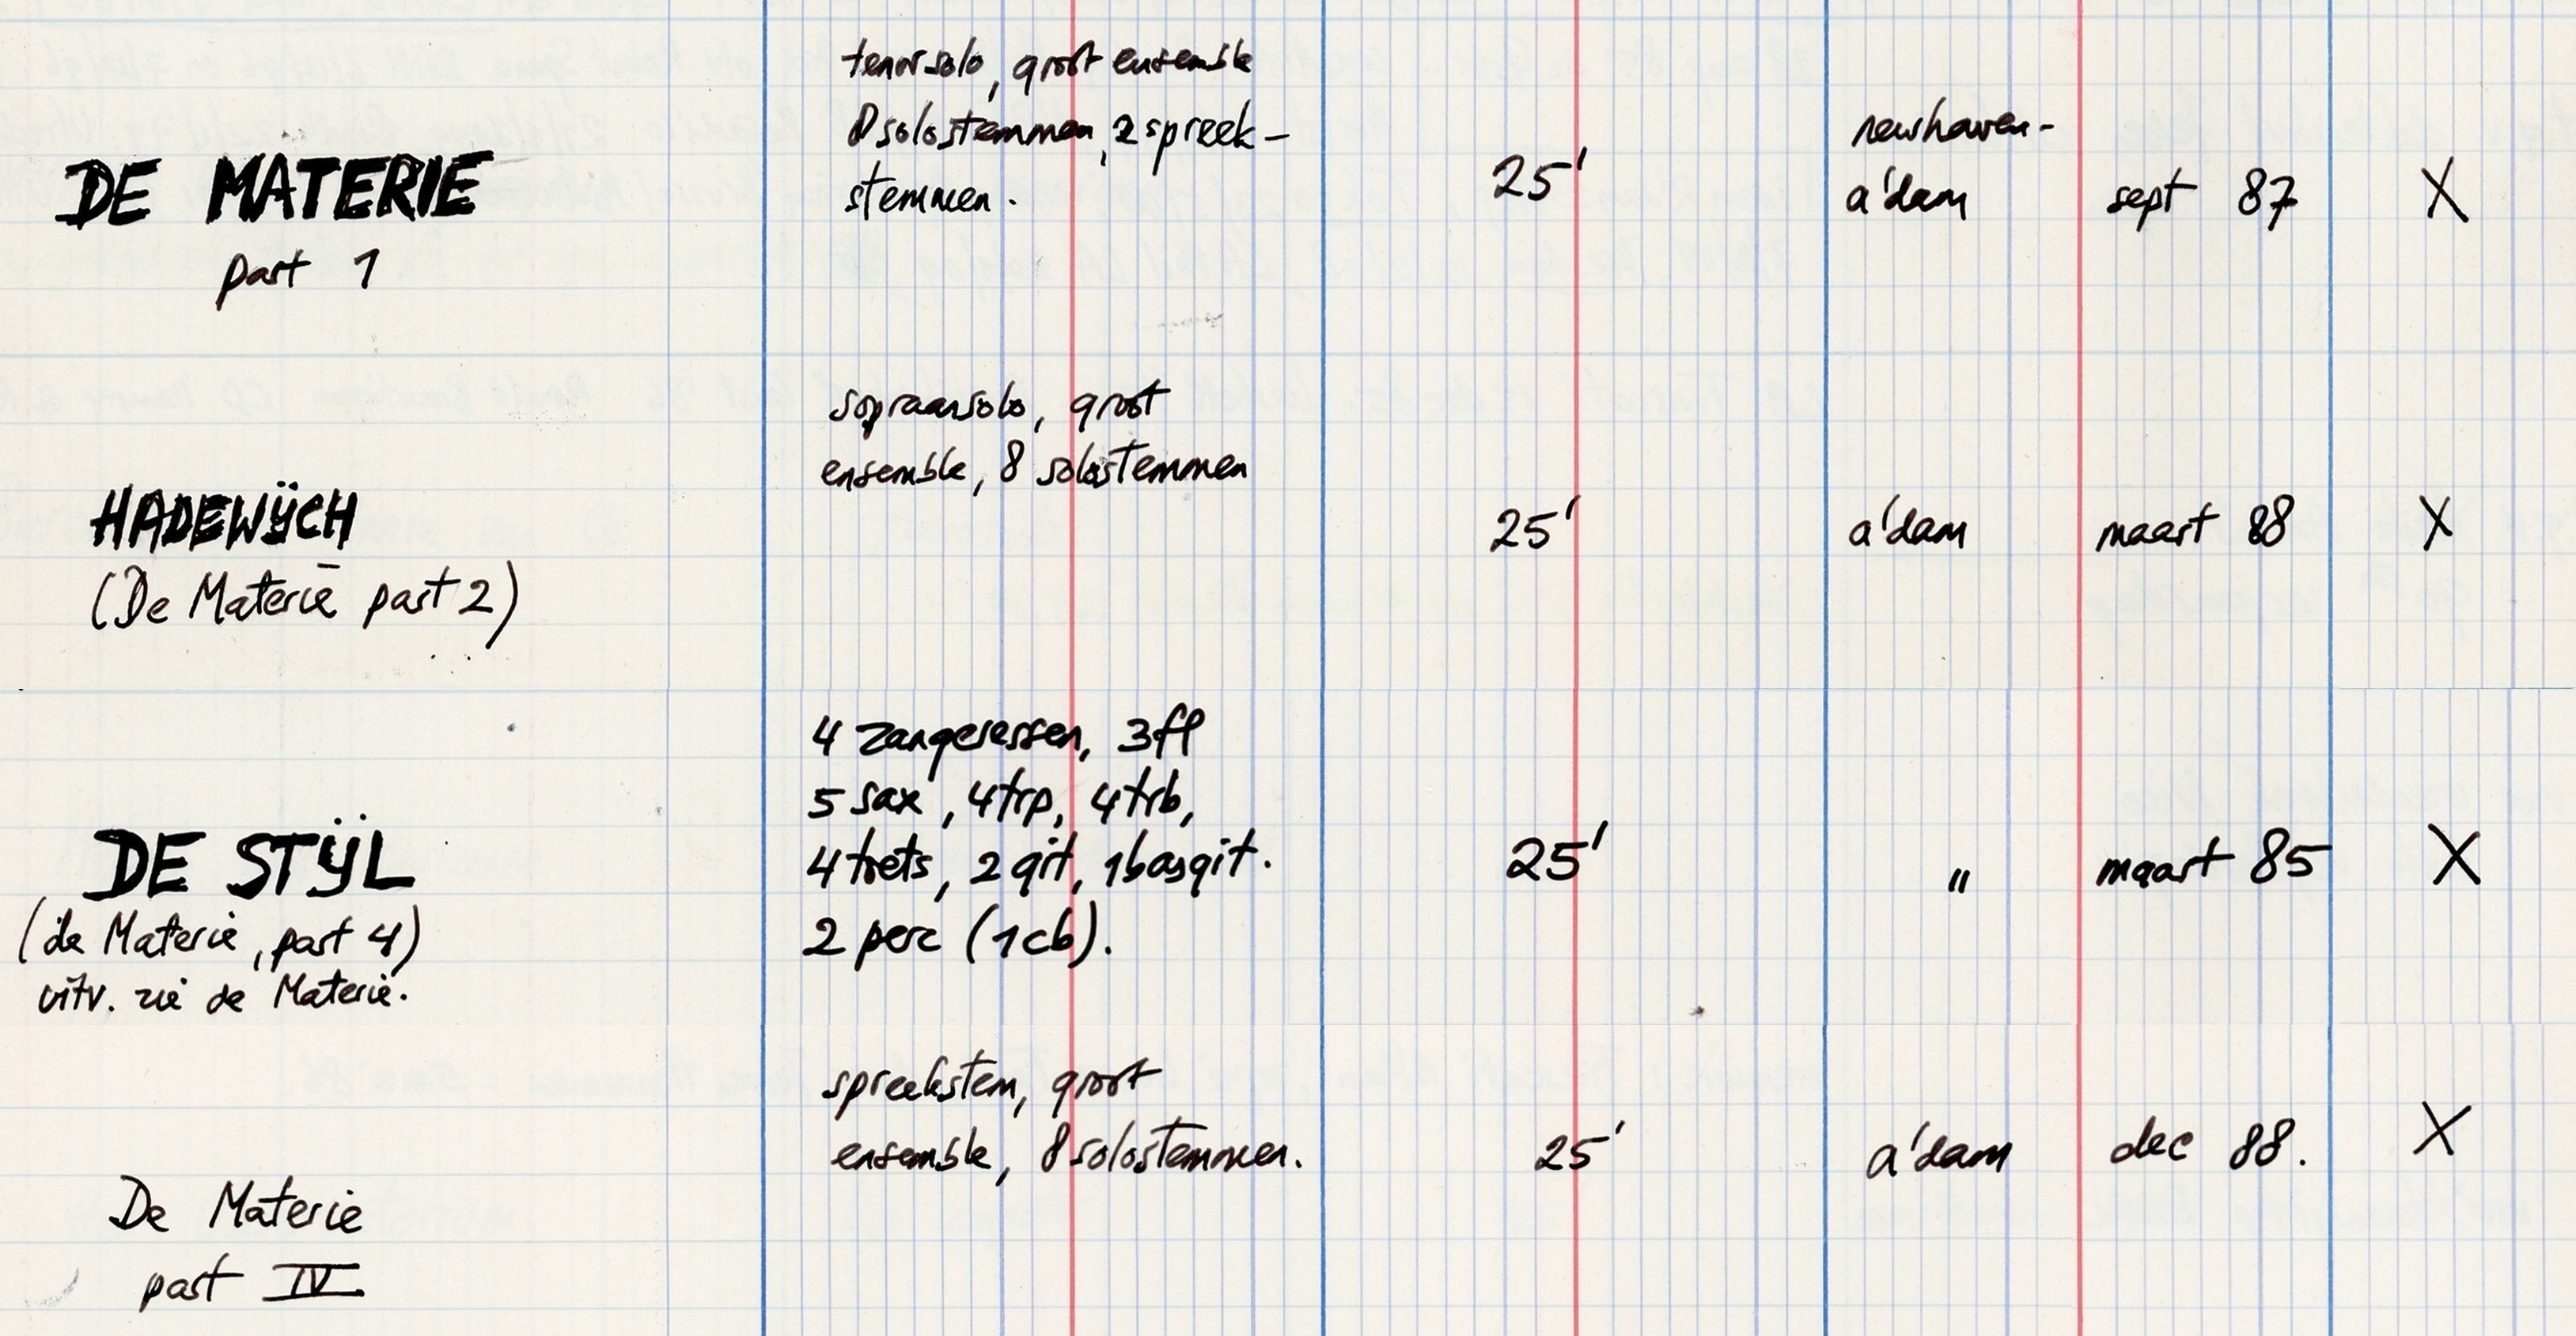 DE MATERIE
part 1
tenorsolo, groot ensemble
8 solostemmen, 2 spreek-
stemmen.
25'
newhaven-
a'dam
sept 87
X
HADEWŸCH
(De Materie part 2)
sopraansolo, groot
ensemble, 8 solostemmen
25'
a'dam
maart 88
X
DE STŸL
(de Materie, part 4)
uitv. zie de Materie.
4 zangeressen, 3 fl
5 sax, 4 trp, 4 trb,
4 toets, 2 git, 1 basgit.
2 perc (1 cb).
25'
"
maart 85
X
De Materie
part IV
spreekstem, groot
ensemble, 8 solostemmen.
25'
a'dam
dec 88.
X